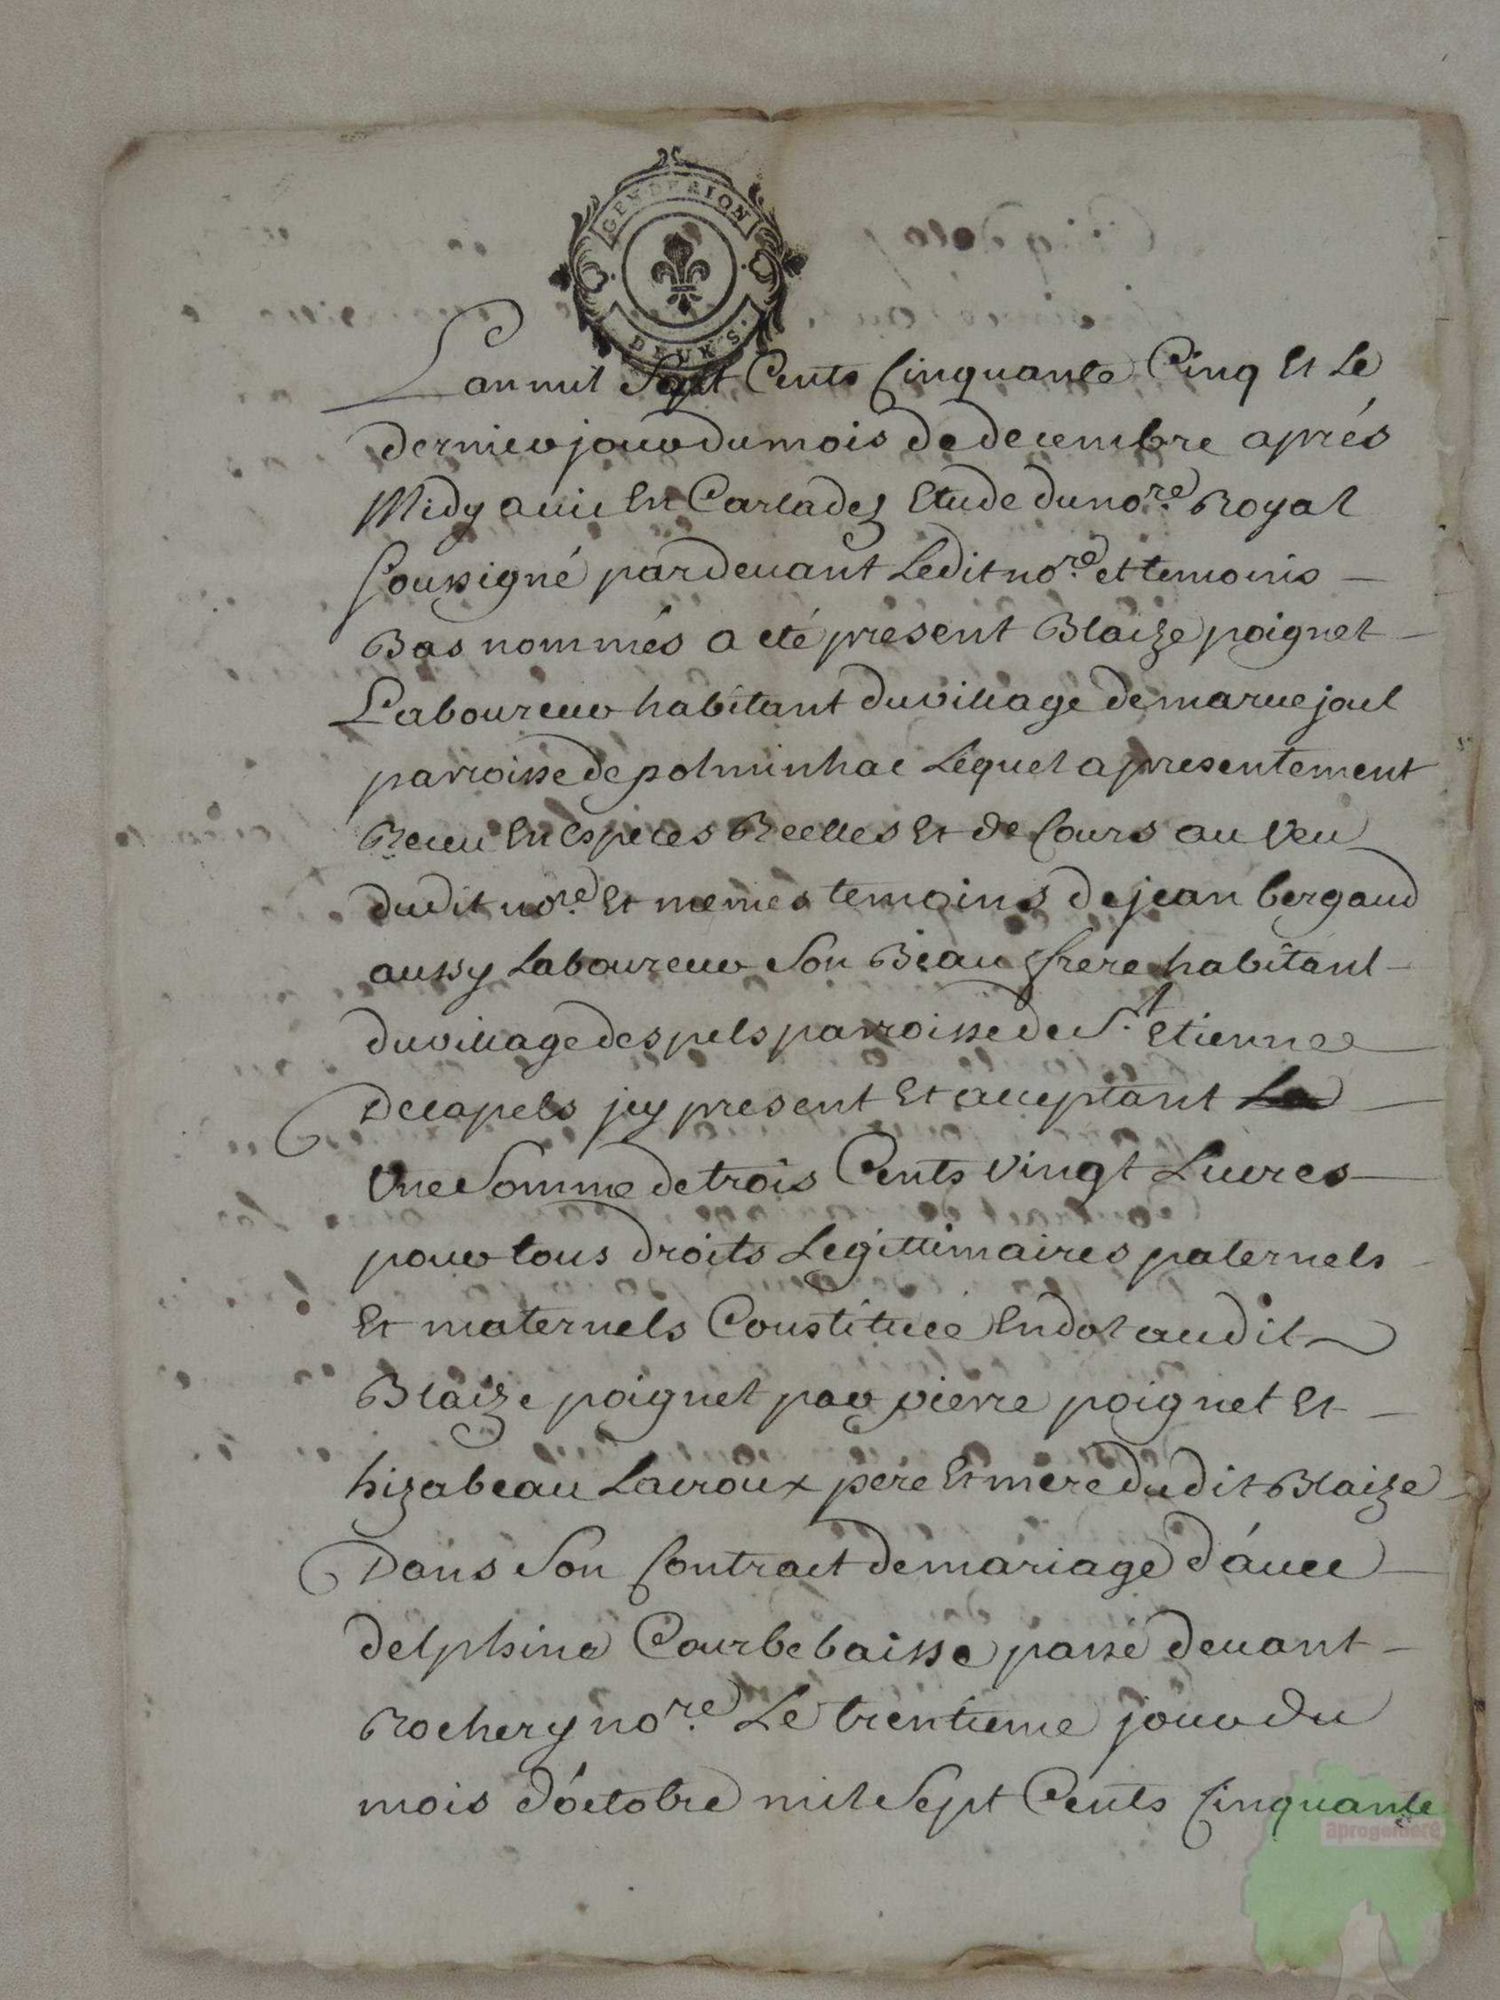 GEN DE RION
DEUX S.
Lan mil Sept Cents Cinquante Cinq Et Le
dernier jour du mois de decembre aprés
Midy a vic En Carladez Etude du no.re Royal
Soussigné pardevant Ledit no.re et temoins
Bas nommés a eté present Blaize poignet
Laboureur habitant du village de maruejoul
parroisse de polminhac Lequel a presentement
Receu En Especes Reelles Et de Cours au veu
dudit no.re Et memes temoins de jean bergaud
aussy Laboureur Son Beau frere habitant
du village despels parroisse de S.t Etienne
De capels jcy present Et acceptant
Une Somme de trois Cents vingt Livres
pour tous droits Legittimaires paternels
Et maternels Constituée En dot audit
Blaize poignet par pierre poignet Et
hizabeau Lacroux pere Et mere dudit Blaize
Dans Son Contract de mariage d'avec
delphine Courbebaisse passé devant
Rochery no.re Le trentieme jour du
mois d'octobre mil Sept Cents Cinquante
aprogemere